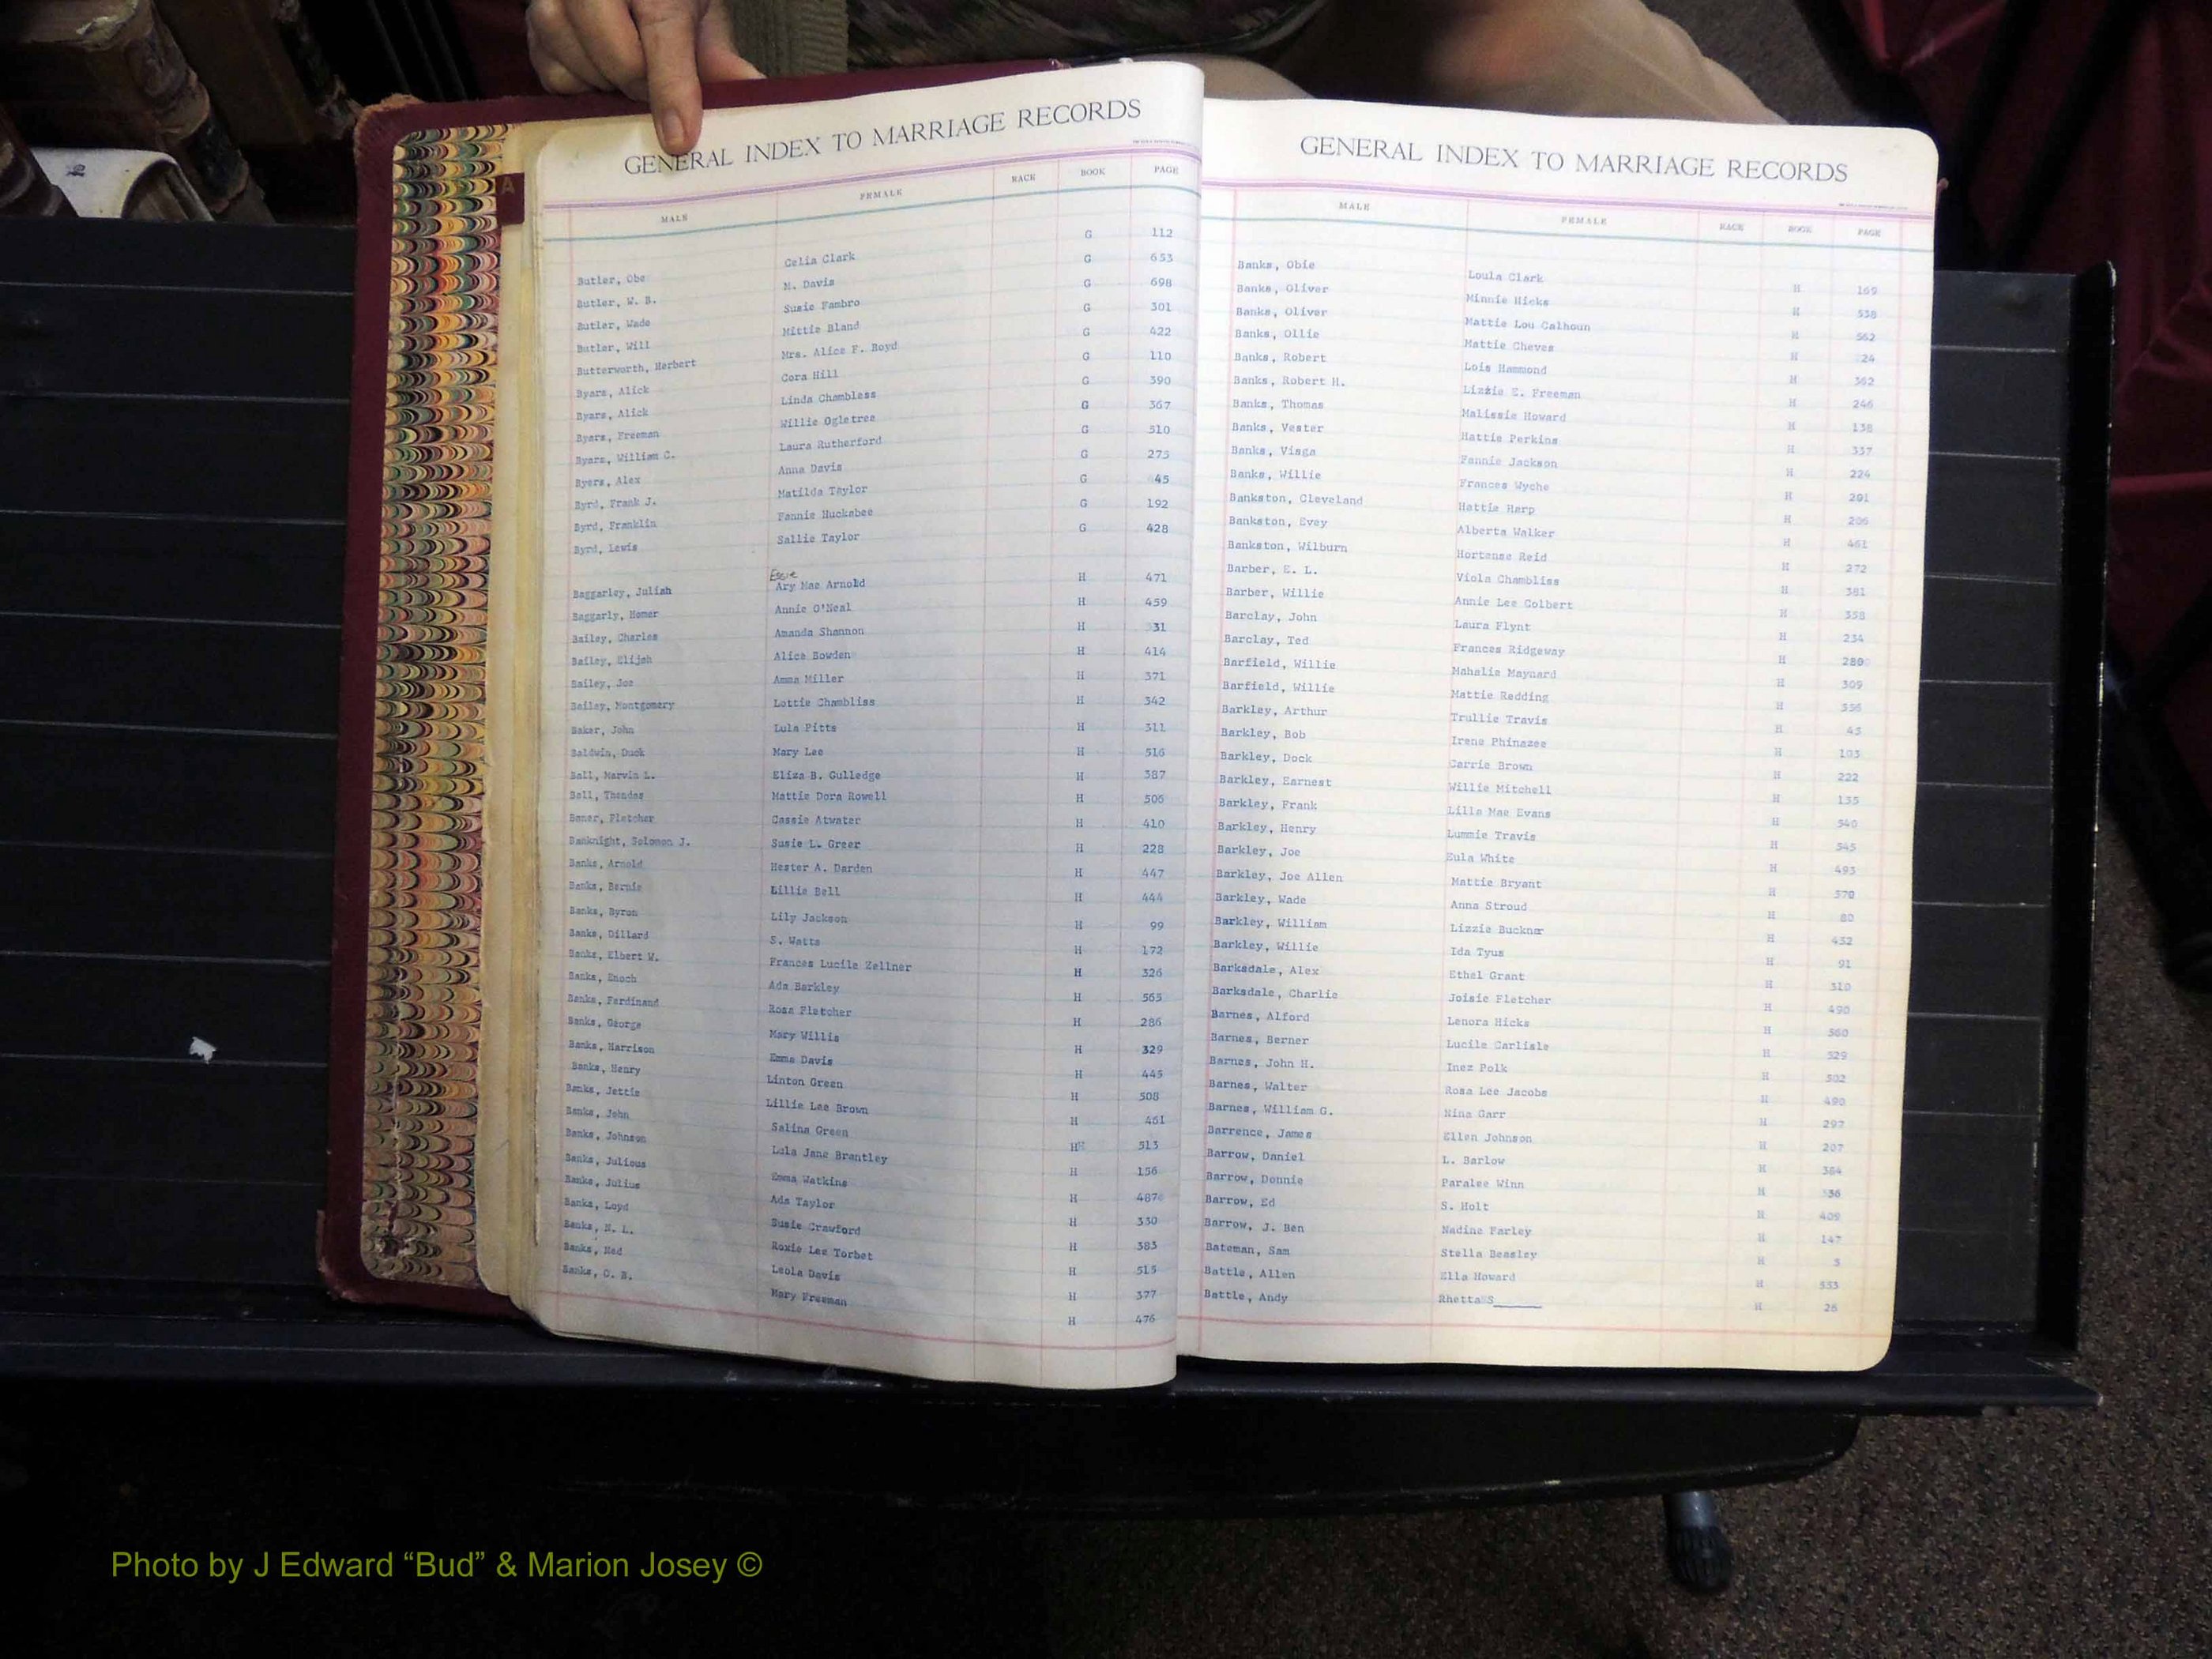 GENERAL INDEX TO MARRIAGE RECORDS
MALE FEMALE RACE BOOK PAGE
Butler, Obe Celia Clark G 112
Butler, W. B. M. Davis G 653
Butler, Wade Susie Fambro G 698
Butler, Will Mittie Bland G 301
Butterworth, Herbert Mrs. Alice F. Boyd G 422
Byars, Alick Cora Hill G 110
Byars, Alick Linda Chambless G 390
Byars, Freeman Willie Ogletree G 367
Byars, William C. Laura Rutherford G 510
Byers, Alex Anna Davis G 275
Byrd, Frank J. Matilda Taylor G 45
Byrd, Franklin Fannie Huckabee G 192
Byrd, Lewis Sallie Taylor G 428
Essie
Baggarley, Julian Ary Mae Arnold H 471
Baggarly, Homer Annie O'Neal H 459
Bailey, Charles Amanda Shannon H 331
Bailey, Elijah Alice Bowden H 414
Bailey, Joe Amma Miller H 371
Bailey, Montgomery Lottie Chambliss H 342
Baker, John Lula Pitts H 311
Baldwin, Duck Mary Lee H 516
Ball, Marvin L. Eliza B. Gulledge H 387
Ball, Thendas Mattie Dora Rowell H 506
Baner, Fletcher Cassie Atwater H 410
Banknight, Solomon J. Susie L. Greer H 228
Banks, Arnold Hester A. Darden H 447
Banks, Bernie Lillie Bell H 444
Banks, Byron Lily Jackson H 99
Banks, Dillard S. Watts H 172
Banks, Elbert W. Frances Lucile Zellner H 326
Banks, Enoch Ada Barkley H 565
Banks, Ferdinand Rosa Fletcher H 286
Banks, George Mary Willis H 329
Banks, Harrison Emma Davis H 445
Banks, Henry Linton Green H 508
Banks, Jettie Lillie Lee Brown H 461
Banks, John Salina Green H 513
Banks, Johnson Lula Jane Brantley H 156
Banks, Julious Emma Watkins H 487
Banks, Julius Ada Taylor H 330
Banks, Loyd Susie Crawford H 383
Banks, N. L. Roxie Lee Torbet H 515
Banks, Ned Leola Davis H 377
Banks, O. B. Mary Freeman H 476
GENERAL INDEX TO MARRIAGE RECORDS
MALE FEMALE RACE BOOK PAGE
Banks, Obie Loula Clark H 169
Banks, Oliver Minnie Hicks H 538
Banks, Oliver Mattie Lou Calhoun H 562
Banks, Ollie Mattie Cheves H 24
Banks, Robert Lois Hammond H 362
Banks, Robert H. Lizzie E. Freeman H 246
Banks, Thomas Malissie Howard H 138
Banks, Vester Hattie Perkins H 337
Banks, Visga Fannie Jackson H 224
Banks, Willie Frances Wyche H 291
Bankston, Cleveland Hattie Harp H 206
Bankston, Evey Alberta Walker H 461
Bankston, Wilburn Hortense Reid H 272
Barber, E. L. Viola Chambliss H 381
Barber, Willie Annie Lee Colbert H 358
Barclay, John Laura Flynt H 234
Barclay, Ted Frances Ridgeway H 280
Barfield, Willie Mahalie Maynard H 309
Barfield, Willie Mattie Redding H 336
Barkley, Arthur Trullie Travis H 43
Barkley, Bob Irene Phinazee H 103
Barkley, Dock Carrie Brown H 222
Barkley, Earnest Willie Mitchell H 135
Barkley, Frank Lilla Mae Evans H 540
Barkley, Henry Lummie Travis H 545
Barkley, Joe Eula White H 493
Barkley, Joe Allen Mattie Bryant H 570
Barkley, Wade Anna Stroud H 80
Barkley, William Lizzie Buckner H 432
Barkley, Willie Ida Tyus H 91
Barksdale, Alex Ethel Grant H 310
Barksdale, Charlie Joisie Fletcher H 490
Barnes, Alford Lenora Hicks H 360
Barnes, Berner Lucile Carlisle H 529
Barnes, John H. Inez Polk H 502
Barnes, Walter Rosa Lee Jacobs H 490
Barnes, William G. Nina Garr H 297
Barrence, James Ellen Johnson H 207
Barrow, Daniel L. Barlow H 384
Barrow, Donnie Paralee Winn H 336
Barrow, Ed S. Holt H 409
Barrow, J. Ben Nadine Farley H 147
Bateman, Sam Stella Beasley H 5
Battle, Allen Ella Howard H 353
Battle, Andy Rhetta S______ H 26
Photo by J Edward “Bud” & Marion Josey ©